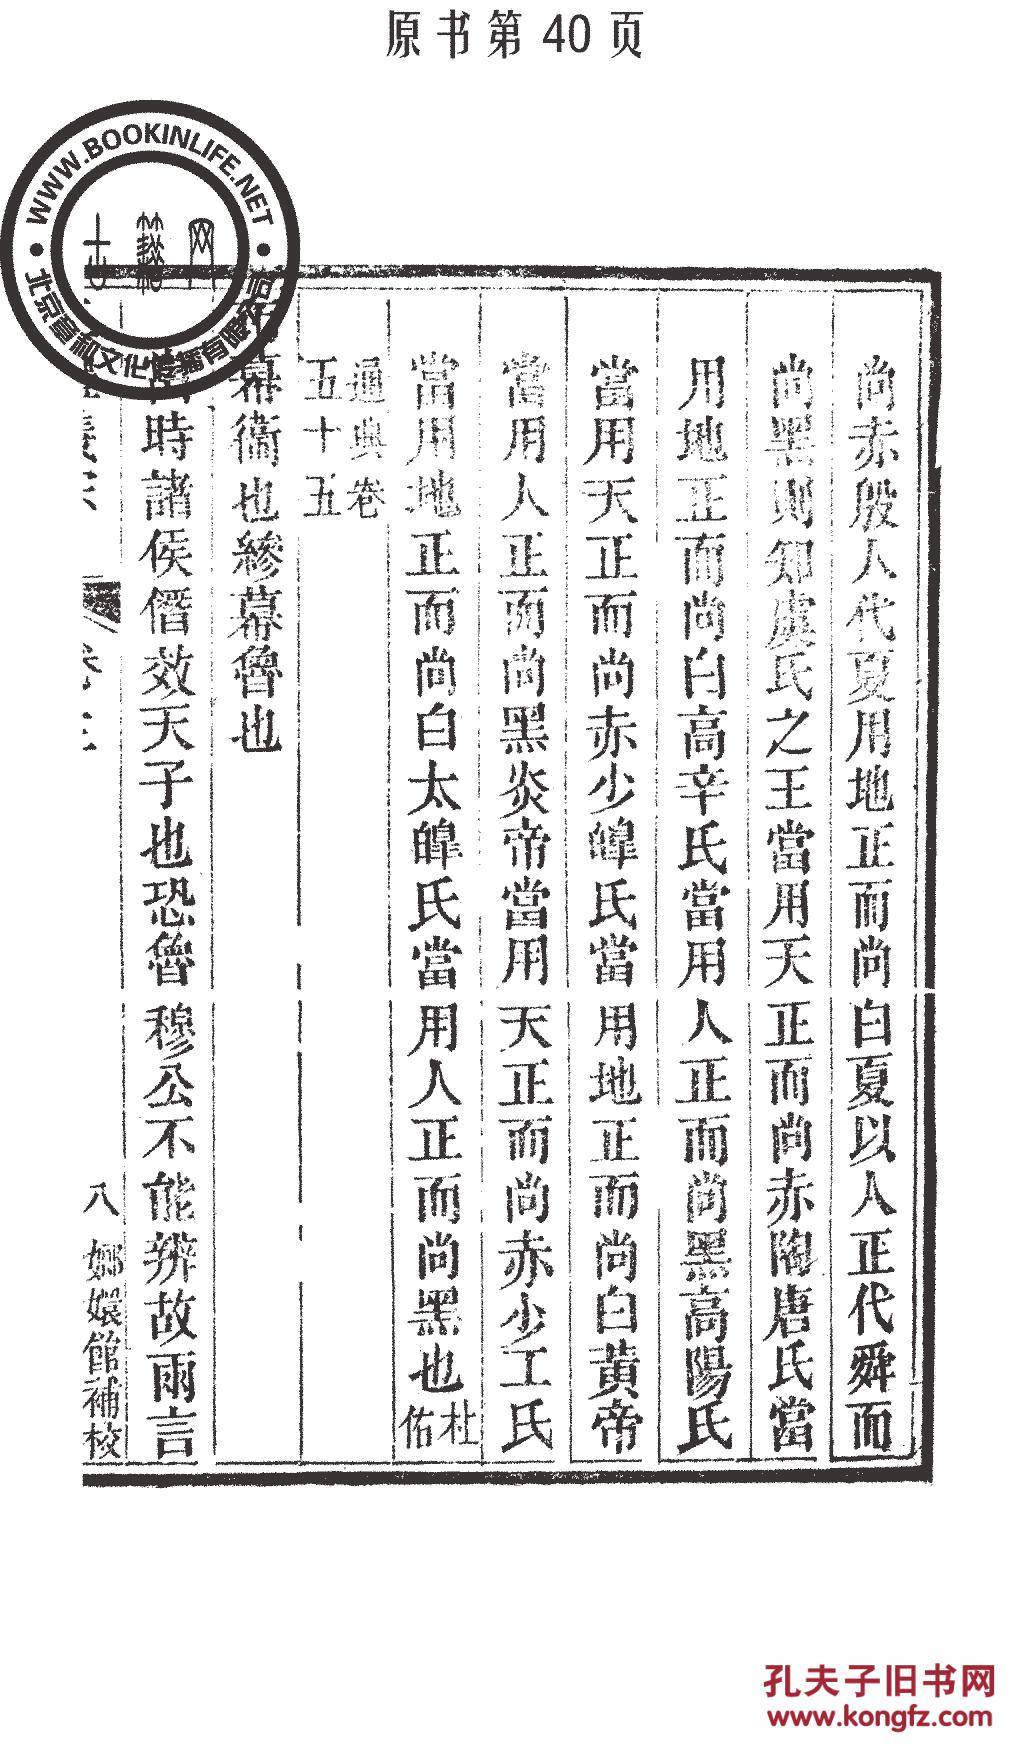 原书第40页
WWW.BOOKINLIFE.NET
北京章和文化传播有限公司
尚赤殷人代夏用地正而尚白夏以人正代舜而
尚黑則知虞氏之王當用天正而尚赤陶唐氏當
用地正而尚白高辛氏當用人正而尚黑高陽氏
當用天正而尚赤少皥氏當用地正而尚白黃帝
當用人正而尚黑炎帝當用天正而尚赤少工氏
當用地正而尚白太皥氏當用人正而尚黑也杜佑
通典卷
五十五
布幕衞也縿幕魯也
時諸侯僭效天子也恐魯穆公不能辨故兩言
卷三
八
嫏嬛館補校
孔夫子旧书网
www.kongfz.com